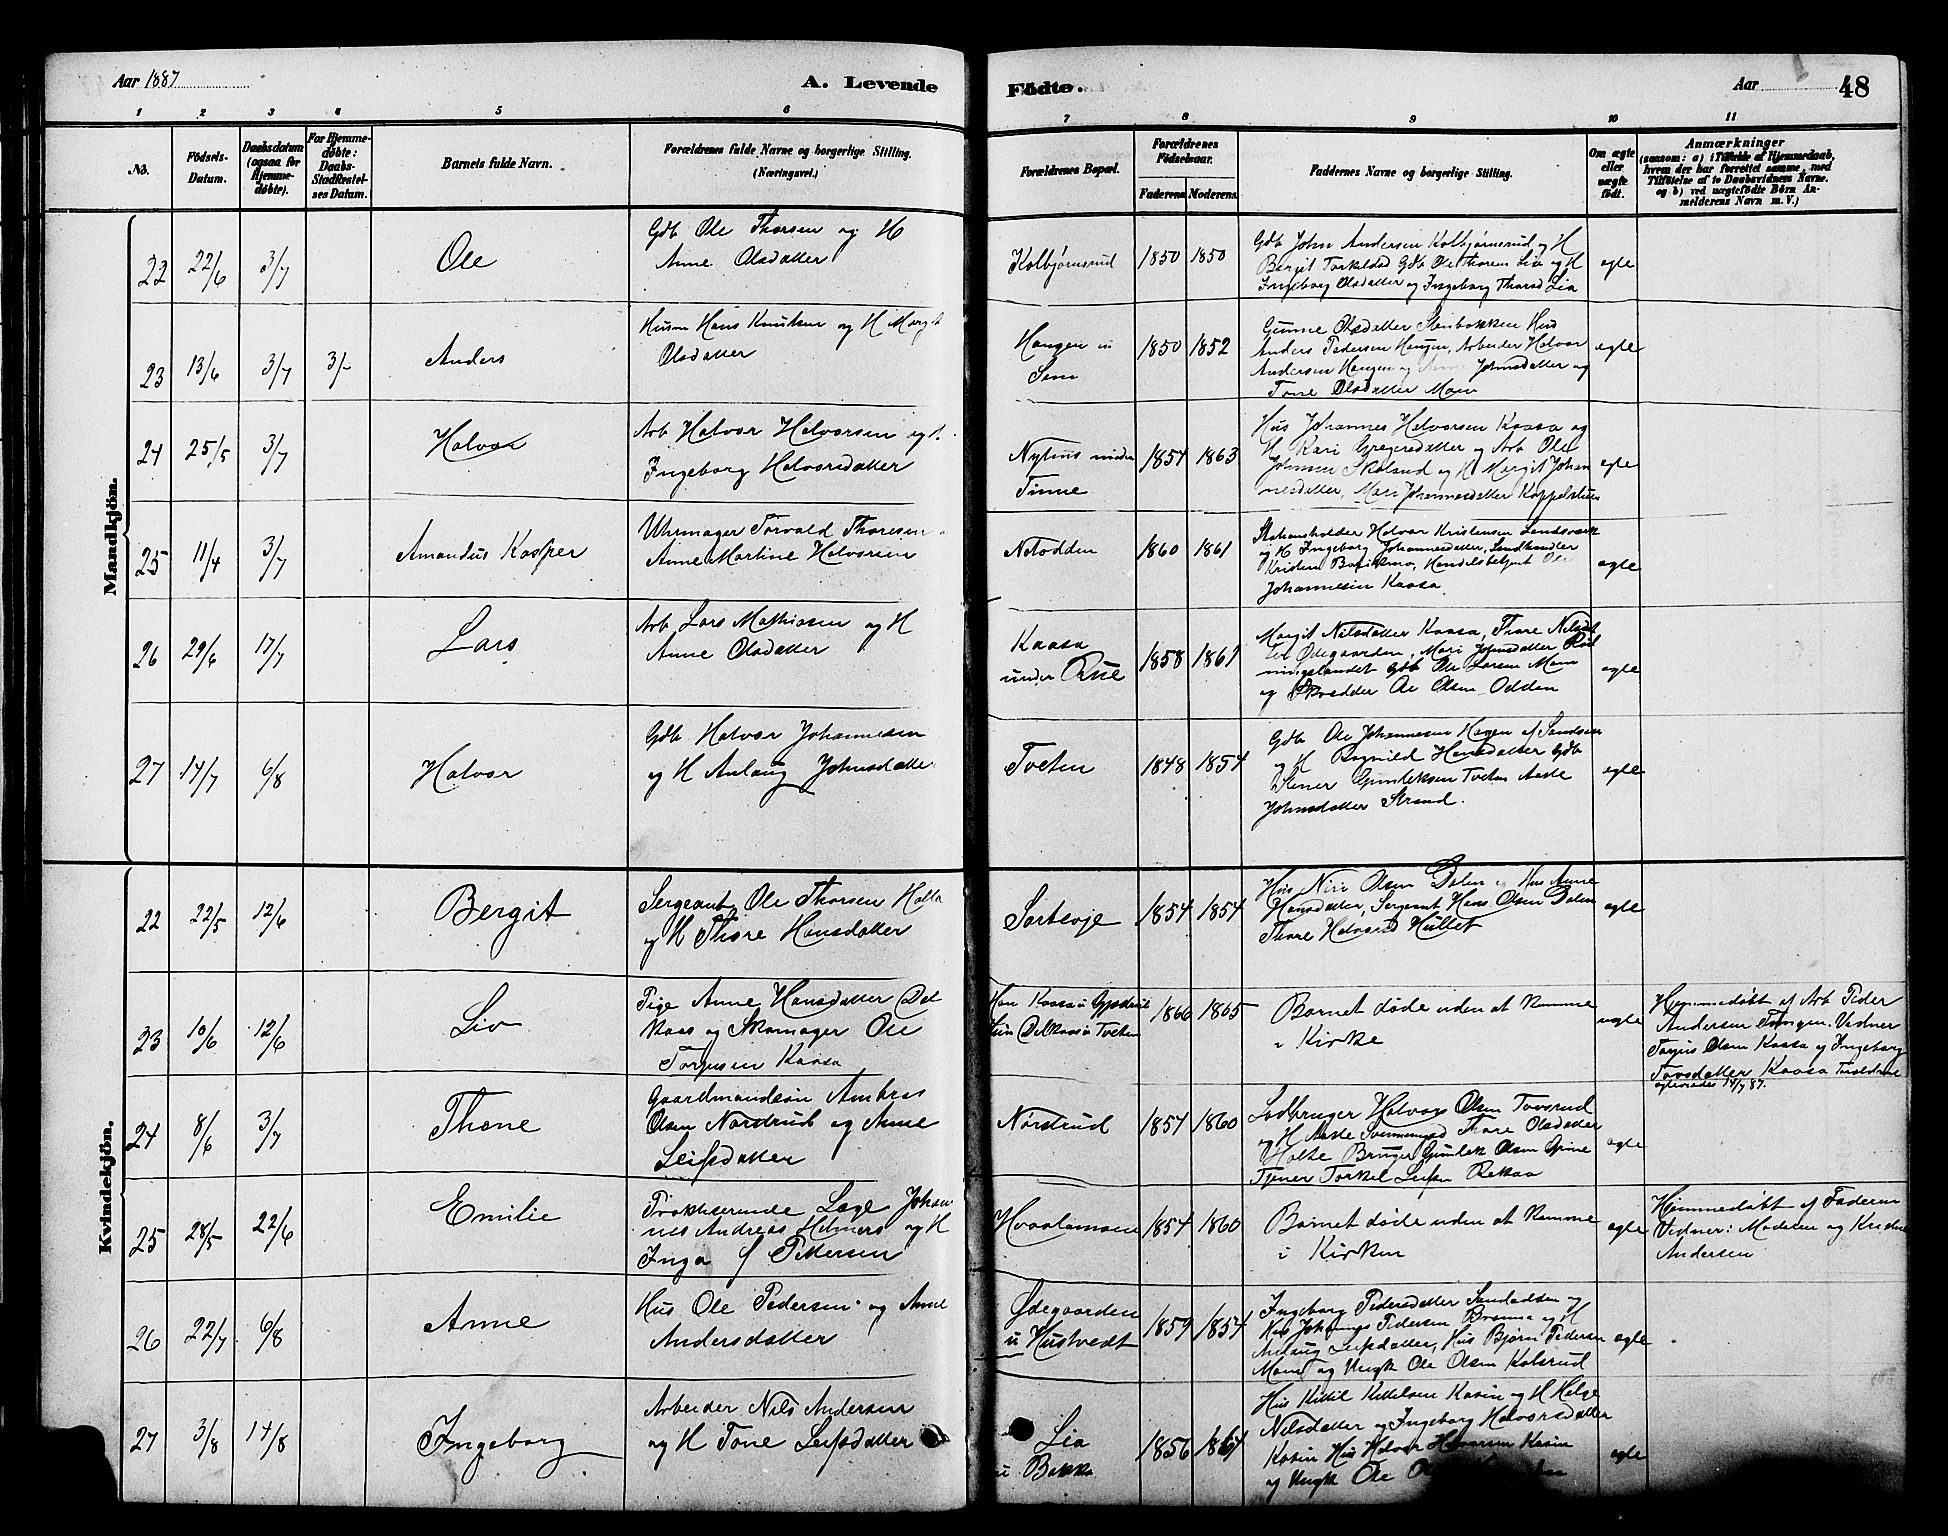 Aar 1887
A. Levende
Fødte.
Aar
48
1 2 3 4 5 6 7 8 9 10 11
No.
Fødsels-
Datum.
Daabsdatum
(ogsaa for
Hjemme-
døbte).
For Hjemme-
døbte:
Daabs-
Stadfæstel-
ses Datum.
Barnets fulde Navn.
Forældrenes fulde Navne og borgerlige Stilling.
(Næringsvei.)
Forældrenes Bopæl.
Forældrenes
Fødselsaar.
Faderens
Moderens
Faddernes Navne og borgerlige Stilling.
Om ægte
eller
uægte
født.
Anmærkninger
(saasom: a) i Tilfælde af Hjemmedaab,
hvem der har forrettet samme, med
Tilføielse af to Daabsvidners Navne.
og b) ved uægtefødte Børn An-
melderens Navn m. V.)
Mandkjön.
22 22/6 3/7
Ole
Gdb Ole Thorsen og H
Anne Olsdatter
Kolbjørnsrud
1850 1850
Gdb John Andersen Kolbjørnsrud og H
Bergit Torkelsd Gdb Ole Thorsen Lia og H
Ingeborg Olsdatter og Ingeborg Thorsd Lia
egte
23 13/6 3/7 3/7
Anders
Husm Hans Knutsen og H Margit
Olsdatter
Haugen u
Sem
1850 1852
Gunne Olsdatter Stenbakken Hus
Anders Pedersen Haugen, Arbeider Halvor
Andersen Haugen og Johnsdatter og
Tone Olsdatter Moen
egte
24 25/5 3/7
Halvor
Arb Halvor Halvorsen og H
Ingeborg Halvorsdatter
Nyhus under
Tinne
1857 1863
Hus Johannes Halvorsen Kaasa og
H Kari Gregersdatter og Arb Ole
Johnsen Skolsrud og H Margit Johan
nesdatter, Mari Johannesdatter Koppelstuen
egte
25 11/4 3/7
Amandus Kasper
Uhrmager Torvald Thoresen
Anne Martine Halvorsen
Notodden
1860 1861
Stationsholder Halvor Kristensen Landsværk
og H Ingeborg Johannesdatter, Landhandler
Kristen Handelsbetjent Ole
Johannesen Kaasa.
egte
26 29/6 17/7
Lars
Arb Lars Mathiasen og H
Anne Olsdatter
Kaasa
under Rue
1858 1861
Margit Nilsdatter Kaasa, Thore Nilsdat
ter Ødegaarden, Mari Johnsdatter Rød
ningslandet Gdb Ole Larsen Moen
og Skrædder Ole Olsen Odden
egte
27 17/7 6/8
Halvor
Gdb Halvor Johannesen
og H Anlaug Johnsdatter
Tveten
1848 1854
Gdb Ole Johannesen Hagen af Sandsvær
og H Ragnild Hansdatter Gdb
Stener Gunleksen Tveten Aaste
Johnsdatter Strand.
egte
Kvindekjön.
22 22/5 12/6
Bergit
Sergeant Ole Thorsen Holta
og H Thore Hansdatter
Sortsøje
1854 1854
Hus Niri Olsen Dalen og Hus Anne
Hansdatter, Sergeant Hans Olsen Dalen
Thore Halvorsd Hullet
egte
23 10/6 12/6
Liv
Pige Anne Hansdatter Del
kaas og Skomager Ole
Torjusen Kaasa
Han Kaasa u Gjøsterud
Hun Delkaas u Tveten
1866 1865
Barnet døde uden at komme
i Kirke
uegte
Hjemmedøbt af Arb Peder
Andersen Tangen. Vidner
Torjus Olsen Kaasa og Ingeborg
Tovsdatter Kaasa Forældrene
egteviedes 14/7 87.
24 8/6 3/7
Thone
Gaardmandssøn Ambros
Olsen Nordrud og Anne
Leifsdatter
Nørstrud
1857 1860
Ladbruger Halvor Olsen Tovsrud
og H Aaste Svennungsd Thore Olsdatter
Holte Bruger Gunlek Olsen Grine
Tjener Torkel Leifsen Rekaa
egte
25 28/5 22/6
Emilie
Praktiserende Læge Johan
nes Andreas Helmers og H
Inga f Pettersen
Hvaalamoen
1854 1860
Barnet døde uden at komme
i Kirken
egte
Hjemmedøbt af Faderen
Vidner: Moderen og Kristine
Andersen
26 22/7 6/8
Anne
Hus Ole Pedersen og Anne
Andersdatter
Ødegaarden
u Hustvedt
1859 1854
Ingeborg Pedersdatter Sandadsen og
Hus Johannes Pedersen Brenna og H
Anlaug Leifsdatter, Hus Bjørn Pedersen
Moen og Ungk Ole Olsen Kolsrud
egte
27 3/8 14/8
Ingeborg
Arbeider Nils Andersen
og H Tone Leifsdatter
Lia
u Bakka
1856 1861
Hus Kittil Kittilsen Kasin og H Helge
Nilsdatter og Ingeborg Halvorsdatter
Kasin Hus Halvor Halvorsen Kasin
og Ungk Ole
egte